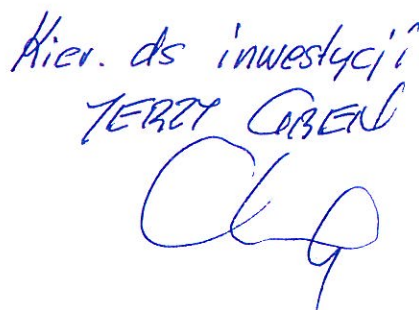 Kier. ds inwestycji
JERZY